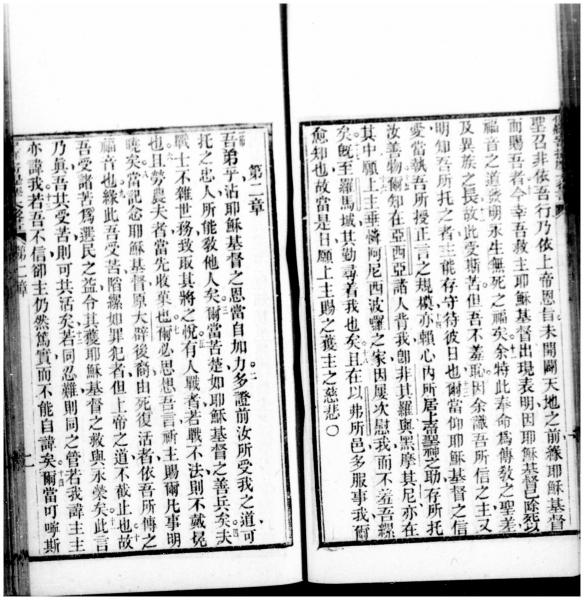 聖召非依吾行乃依上帝恩旨未開闢天地之前緣耶穌基督
而賜吾者今幸吾救主耶穌基督出現表明因耶穌基督已除死以
福音之道發明永生無死之福矣余特此奉命爲傳教之聖差
及異族之長故此受斯苦但吾不羞恥因余識吾所信之主又
明知吾所托之者主能存守待彼日也爾當仰耶穌基督之信
愛當執吾所授正言之規模亦賴心內所居吉聖神之助存所托
汝善物爾知在亞西亞諸人背我卽非其羅與黑摩其尼亦在
其中願上主垂憐阿尼西波囉之家因屢次慰我而不羞吾縲
矣旣至羅馬域其勤尋着我也矣且在以弗所邑多服事我爾
愈知也故當是日願上主賜之獲主之慈悲〇
第二章
吾弟乎沾耶穌基督之恩當自加力多證前汝所受我之道可
托之忠人所能敎他人矣爾當苦楚如耶穌基督之善兵矣夫
戰士不雜世務致取其將之悅有人戰者若戰不法則不戴冕
也且勞農夫者當先收菓也爾必思想吾言祈主賜爾凡事明
曉矣當記念耶穌基督原大辟後裔由死復活者依吾所傳之
福音也緣此吾受苦陷縲如罪犯者但上帝之道不截止也故
吾受諸苦爲選民之益令其獲耶穌基督之救與永榮矣此言
乃眞吾其受苦則可其活矣若同忍難則同之管若我諱主主
亦諱我若吾不信卻主仍然篤實而不能自諱矣爾當叮嚀斯